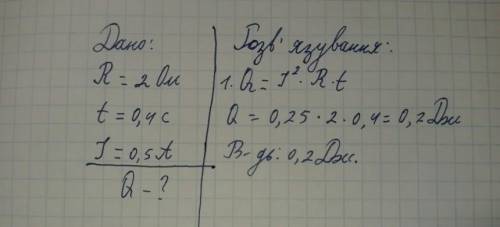 Дано:
R = 2 Ом
t = 0,4 с
I = 0,5 А
Q - ?
Розв'язування:
1. Q = I²· R · t
Q = 0,25 · 2 · 0,4 = 0,2 Дж
В-дь: 0,2 Дж.